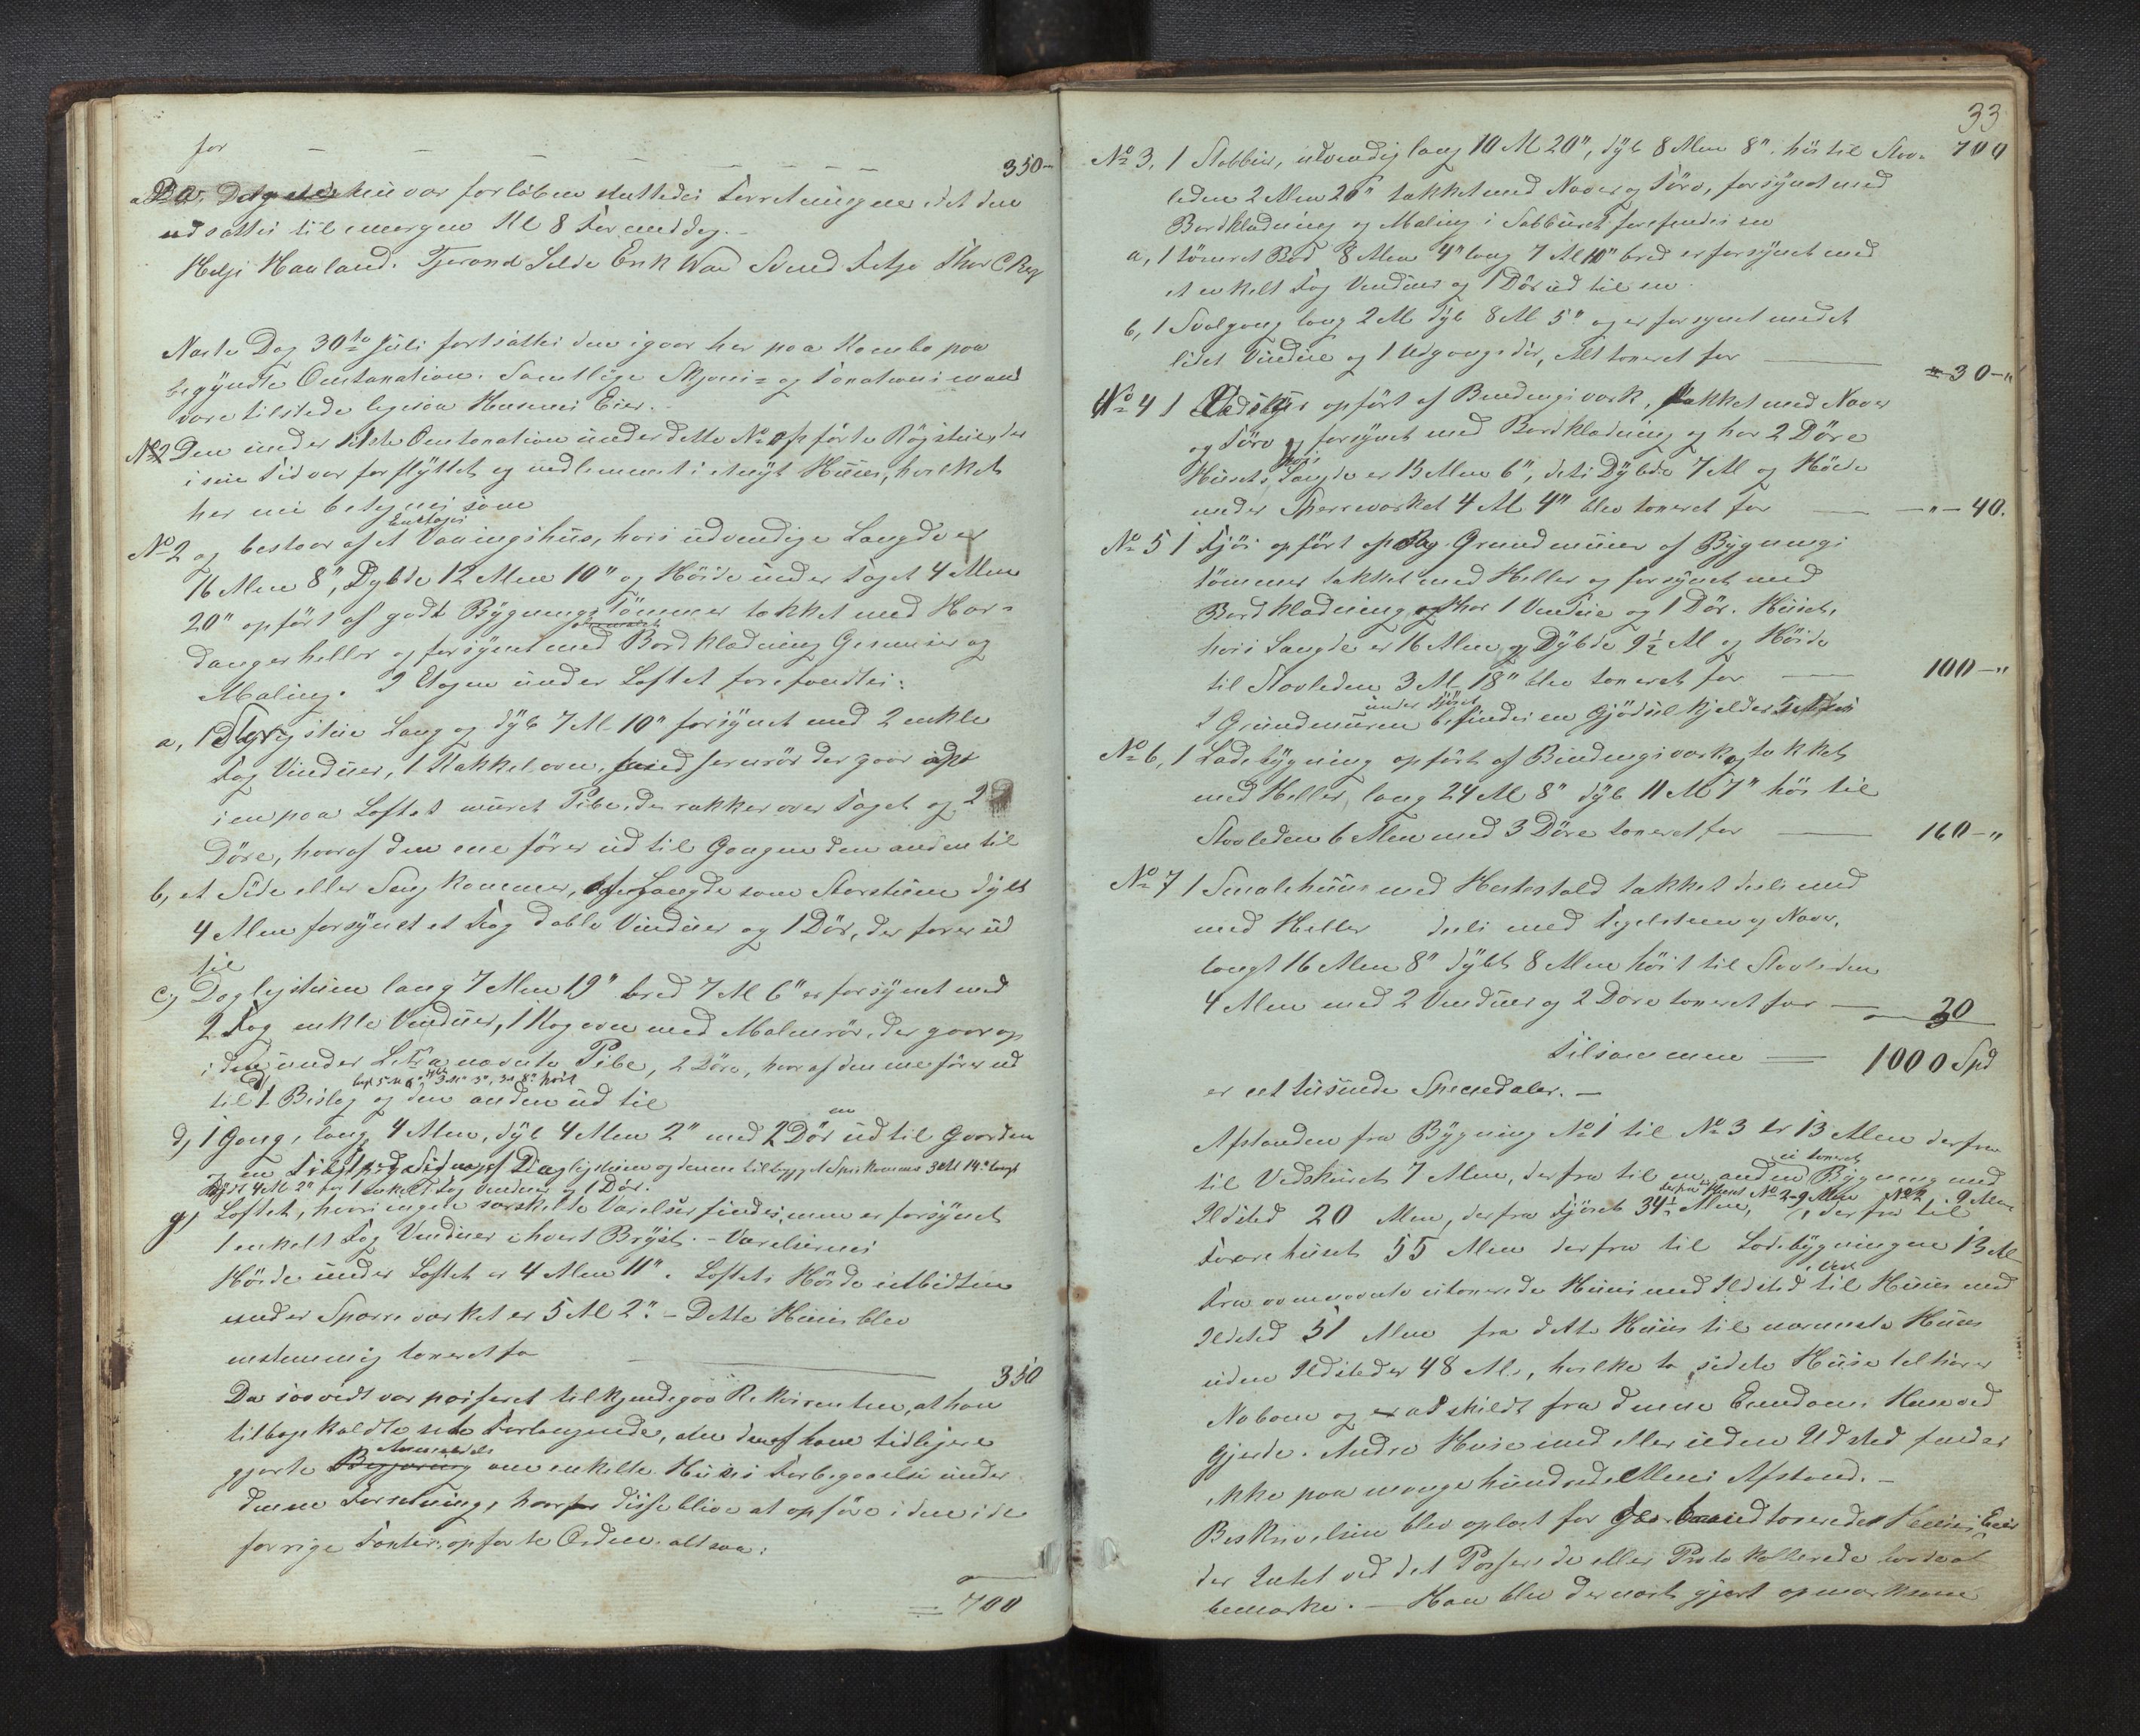 for — — — — — — — — 350-
Da Dagen var forløben sluttedes Forretningen idet den
udsattes til imorgen Kl 8 Formiddag. -
Helje Haaland. Tjerand Selde Erik Svend Thor C
Næste Dag 30te Juli fortsattes den igaar her paa Rambe paa
begyndte Omtaxation. Samtlige Skjøns- og Taxationsmænd
vare tilstede ligesom Husenes Eier.
No 2 Den under sidste Omtaxation under dette No opførte Røgstue, der
i sin Tid var forflyttet og indlemmet i et nyt Huus, hvilket
her nu betegnes som
No 2 og bestaar af et Enetages Vaaningshus, hvis udvendige Længde er
16 Alen 8", Dybde 12 Alen 10" og Höide under Taget 4 Alen
20" opført af godt Bygningstømmer takket med Har-
dangerheller og forsynet med Bordklædning Gesimser og
Maling. I Etagen under Loftet forefandtes:
a, 1 Storstue Lang og dyb 7 Al 10" forsynet med 2 enkle
Fag Vinduer, 1 Kakkelovn, med Jernrør der gaar op
i en paa Loftet muret Pibe, der rækker over Taget og 2
Døre, hvoraf den ene fører ud til Gangen den anden til
b, et Side eller Sengkammer, af Længde som Storstuen dybt
4 Alen forsynet et Fag doble Vinduer og 1 Dör, der fører ud
til
c, Daglejstuen lang 7 Alen 19" bred 7 Al 6" er forsynet med
2 Fag enkle Vinduer, 1 Kogovn med Malmrør, der gaar op
i den under Litr a nævnte Pibe, 2 Døre, hvoraf den ene fører ud
til 1 Bislag og den anden ud til
d, 1 Gang, lang 4 Alen, dyb 4 Alen 2" med 2 Dör ud til Gaarden
og en Daglejstuen og denne tilbygget Spiskammer 3 Al 14" langt
dybt 4 Al 2" har 1 enkelt Fag Vinduer og 1 Dör.
g, Loftet, hvori ingen særskilte Værelser findes, men er forsynet
1 enkelt Fag Vinduer i hvert Bryst. - Værelsernes
Höide under Loftet er 4 Alen 11". Loftets Höide i Midten
under Sparreværket er 5 Al 2". - Dette Huus blev
enstemmig taxeret for — 350
Da saavidt var passeret tilkjendegav Rekvirenten, at han
tilbagekaldte sit Forlangende, den af ham tidligere
gjorte Anmodede om enkelte Huses Forbigaaelse under
denne Forretning, hvorfor disse blive at opføre i den i de
forrige Taxter opførte Orden. altsaa:
= 700
33
No 3, 1 Stabbur, udvendig lang 10 Al 20", dyb 8 Alen 8". høi til Stav- 700
leden 2 Alen 20" takket med Næver og Törv, forsynet med
Bordklædning og Maling i Stabburet forefindes en
a, 1 tømret Bod 8 Alen 4" lang 7 Al 10" bred er forsynet med
et enkelt Fag Vinduer og 1 Dör ud til en
b, 1 Svalgang lang 2 Al dyb 8 Al 5" og er forsynet med et
lidet Vindue og 1 Udgangsdör, Alt taxeret for — " 30-"
No 4 1 Vedskuur opført af Bindingsværk, takket med Næver
og Törv og forsynet med Bordklædning og har 2 Døre
Husets Længde er 13 Alen 6", dets Dybde 7 Al og Höide
under Sperreværket 4 Al 4" blev taxeret for — " 40.
No 5 1 Fjös opført af Grundmuur af Bygnings
tømmer takket med Heller og forsynet med
Bordklædning og har 1 Vindue og 1 Dör. Huset,
hvis Længde er 16 Alen og Dybde 9½ Al og Höide
til Stavleden 3 Al 18" blev taxeret for — 100-"
I Grundmuren under Fjöset befindes en Gjødselkjelder
No 6, 1 Ladebygning opført af Bindingsværk og takket
med Heller, lang 24 Al 8" dyb 11 Al 7" høi til
Stavleden 6 Alen med 3 Døre taxeret for — 160-"
No 7 1 Smalehuus med Hestestald takket deels med
med Heller deels med Tegelsteen og Næver,
langt 16 Alen 8" dybt 8 Alen høit til Stavleden
4 Alen med 2 Vinduer og 2 Døre taxeret for — 20
tilsammen — 1000 Spd
er eet tusinde Speciedaler. -
Afstanden fra Bygning No 1 til No 3 er 13 Alen derfra
til Vedskuret 7 Alen, derfra til en anden ei taxeret Bygning med
Ildsted 20 Alen, derfra Fjöset 34½ Alen, derfra til
55 Alen derfra til Ladebygningen 13 Al
Fra ovennævnte utaxerede Huus med Ildsted til Huus med
Ildsted 51 Alen fra dette Huus til nærmeste Huus
uden Ildsted er 48 Al, hvilke to sidste Huse tilhører
Naboen og er adskildt fra denne Eiendoms Huse ved
Gjerde. Andre Huse med eller uden Ildsted findes
ikke paa mange hundrede Alens Afstand. -
Beskrivelsen blev oplæst for de taxerede Huses Eier
der Intet ved det Passerede eller Protokollerede havde at
bemærke. - Han blev dernæst gjort opmærksom